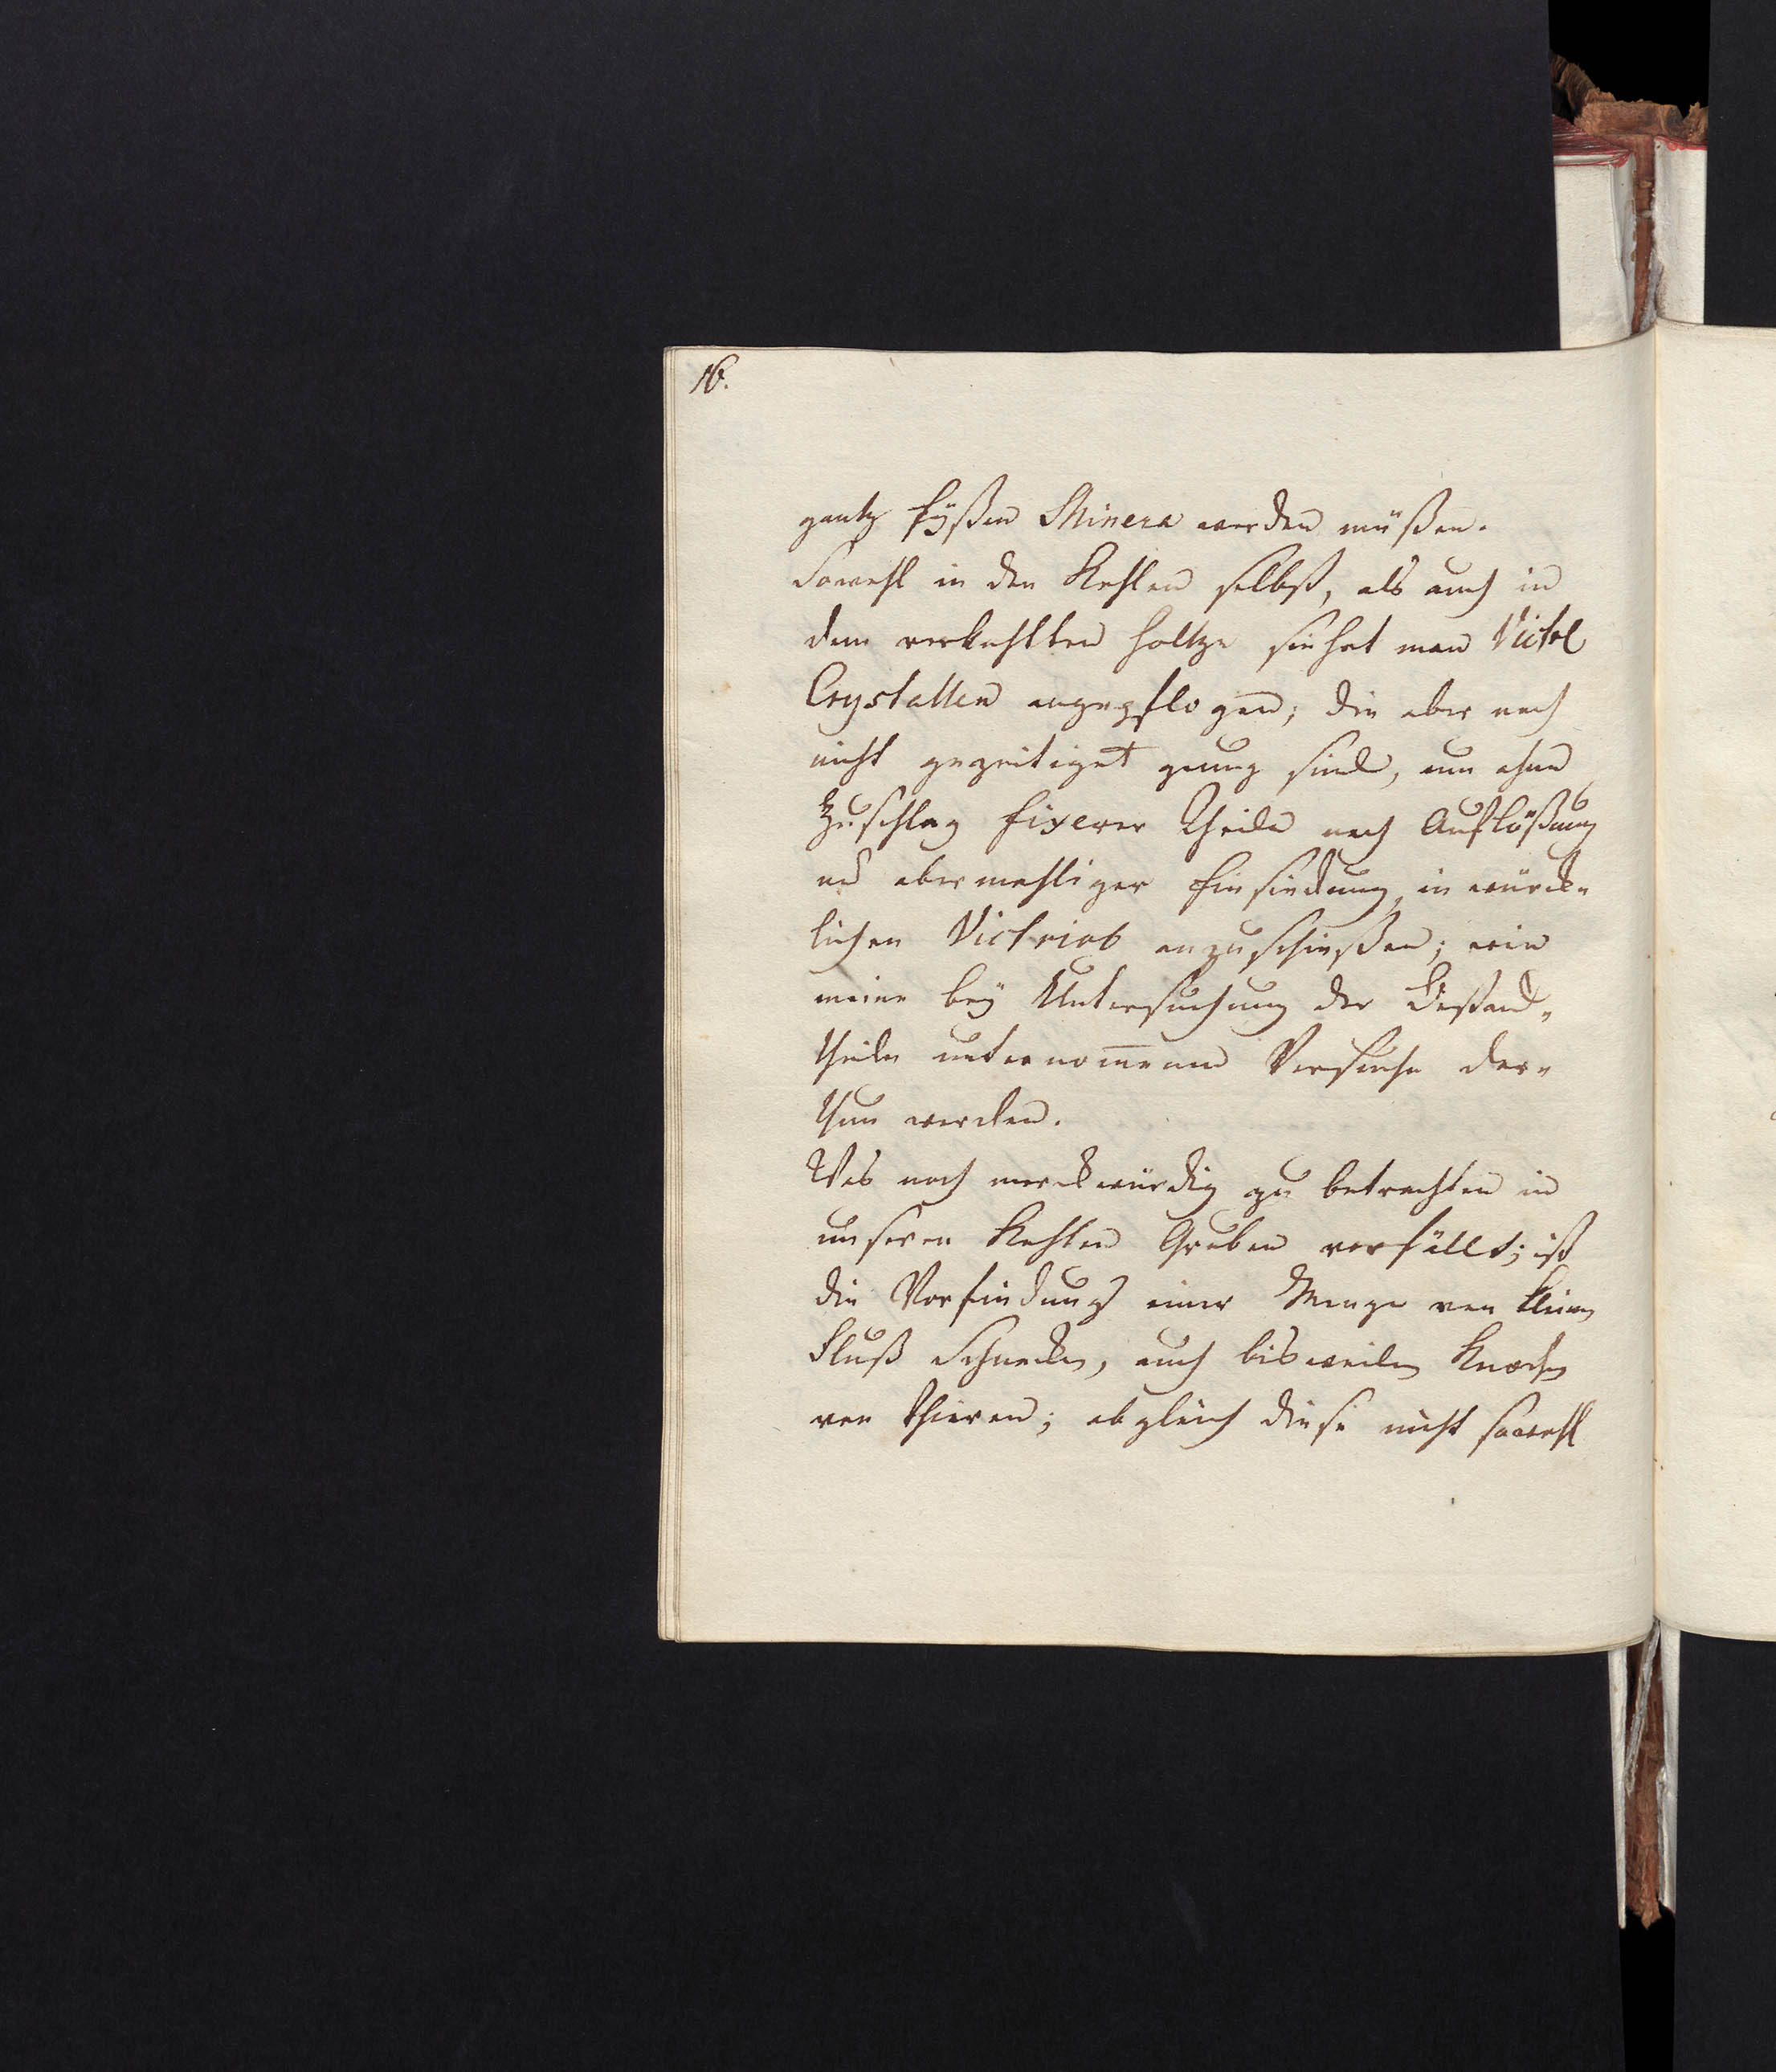 16.
gantz fixen Minera werden müßen.
Sowohl in den Kohlen selbst, als auch in
dem verkohlten Holtze siehet man Victol
Crystallen angepflogen; die aber noch
nicht gezeitiget genug sind, um ohne
Zuschlag fixerer Theile nach Auflößung
und abermahliger Einsiedung, in würck„
lichen Victriol anzuschießen; wie
meine bey Untersuchung der Bestand„
theile unternom̄enen Versuche dar„
thun werden.
Was noch merckwürdig zu betrachten in
unseren Kohlen Gruben vorfällt; ist
die Vorfindung einer Menge von kleinen
Fluß Schnecken, auch bisweilen Knochen
von Thieren; obgleich diese nicht sowohl